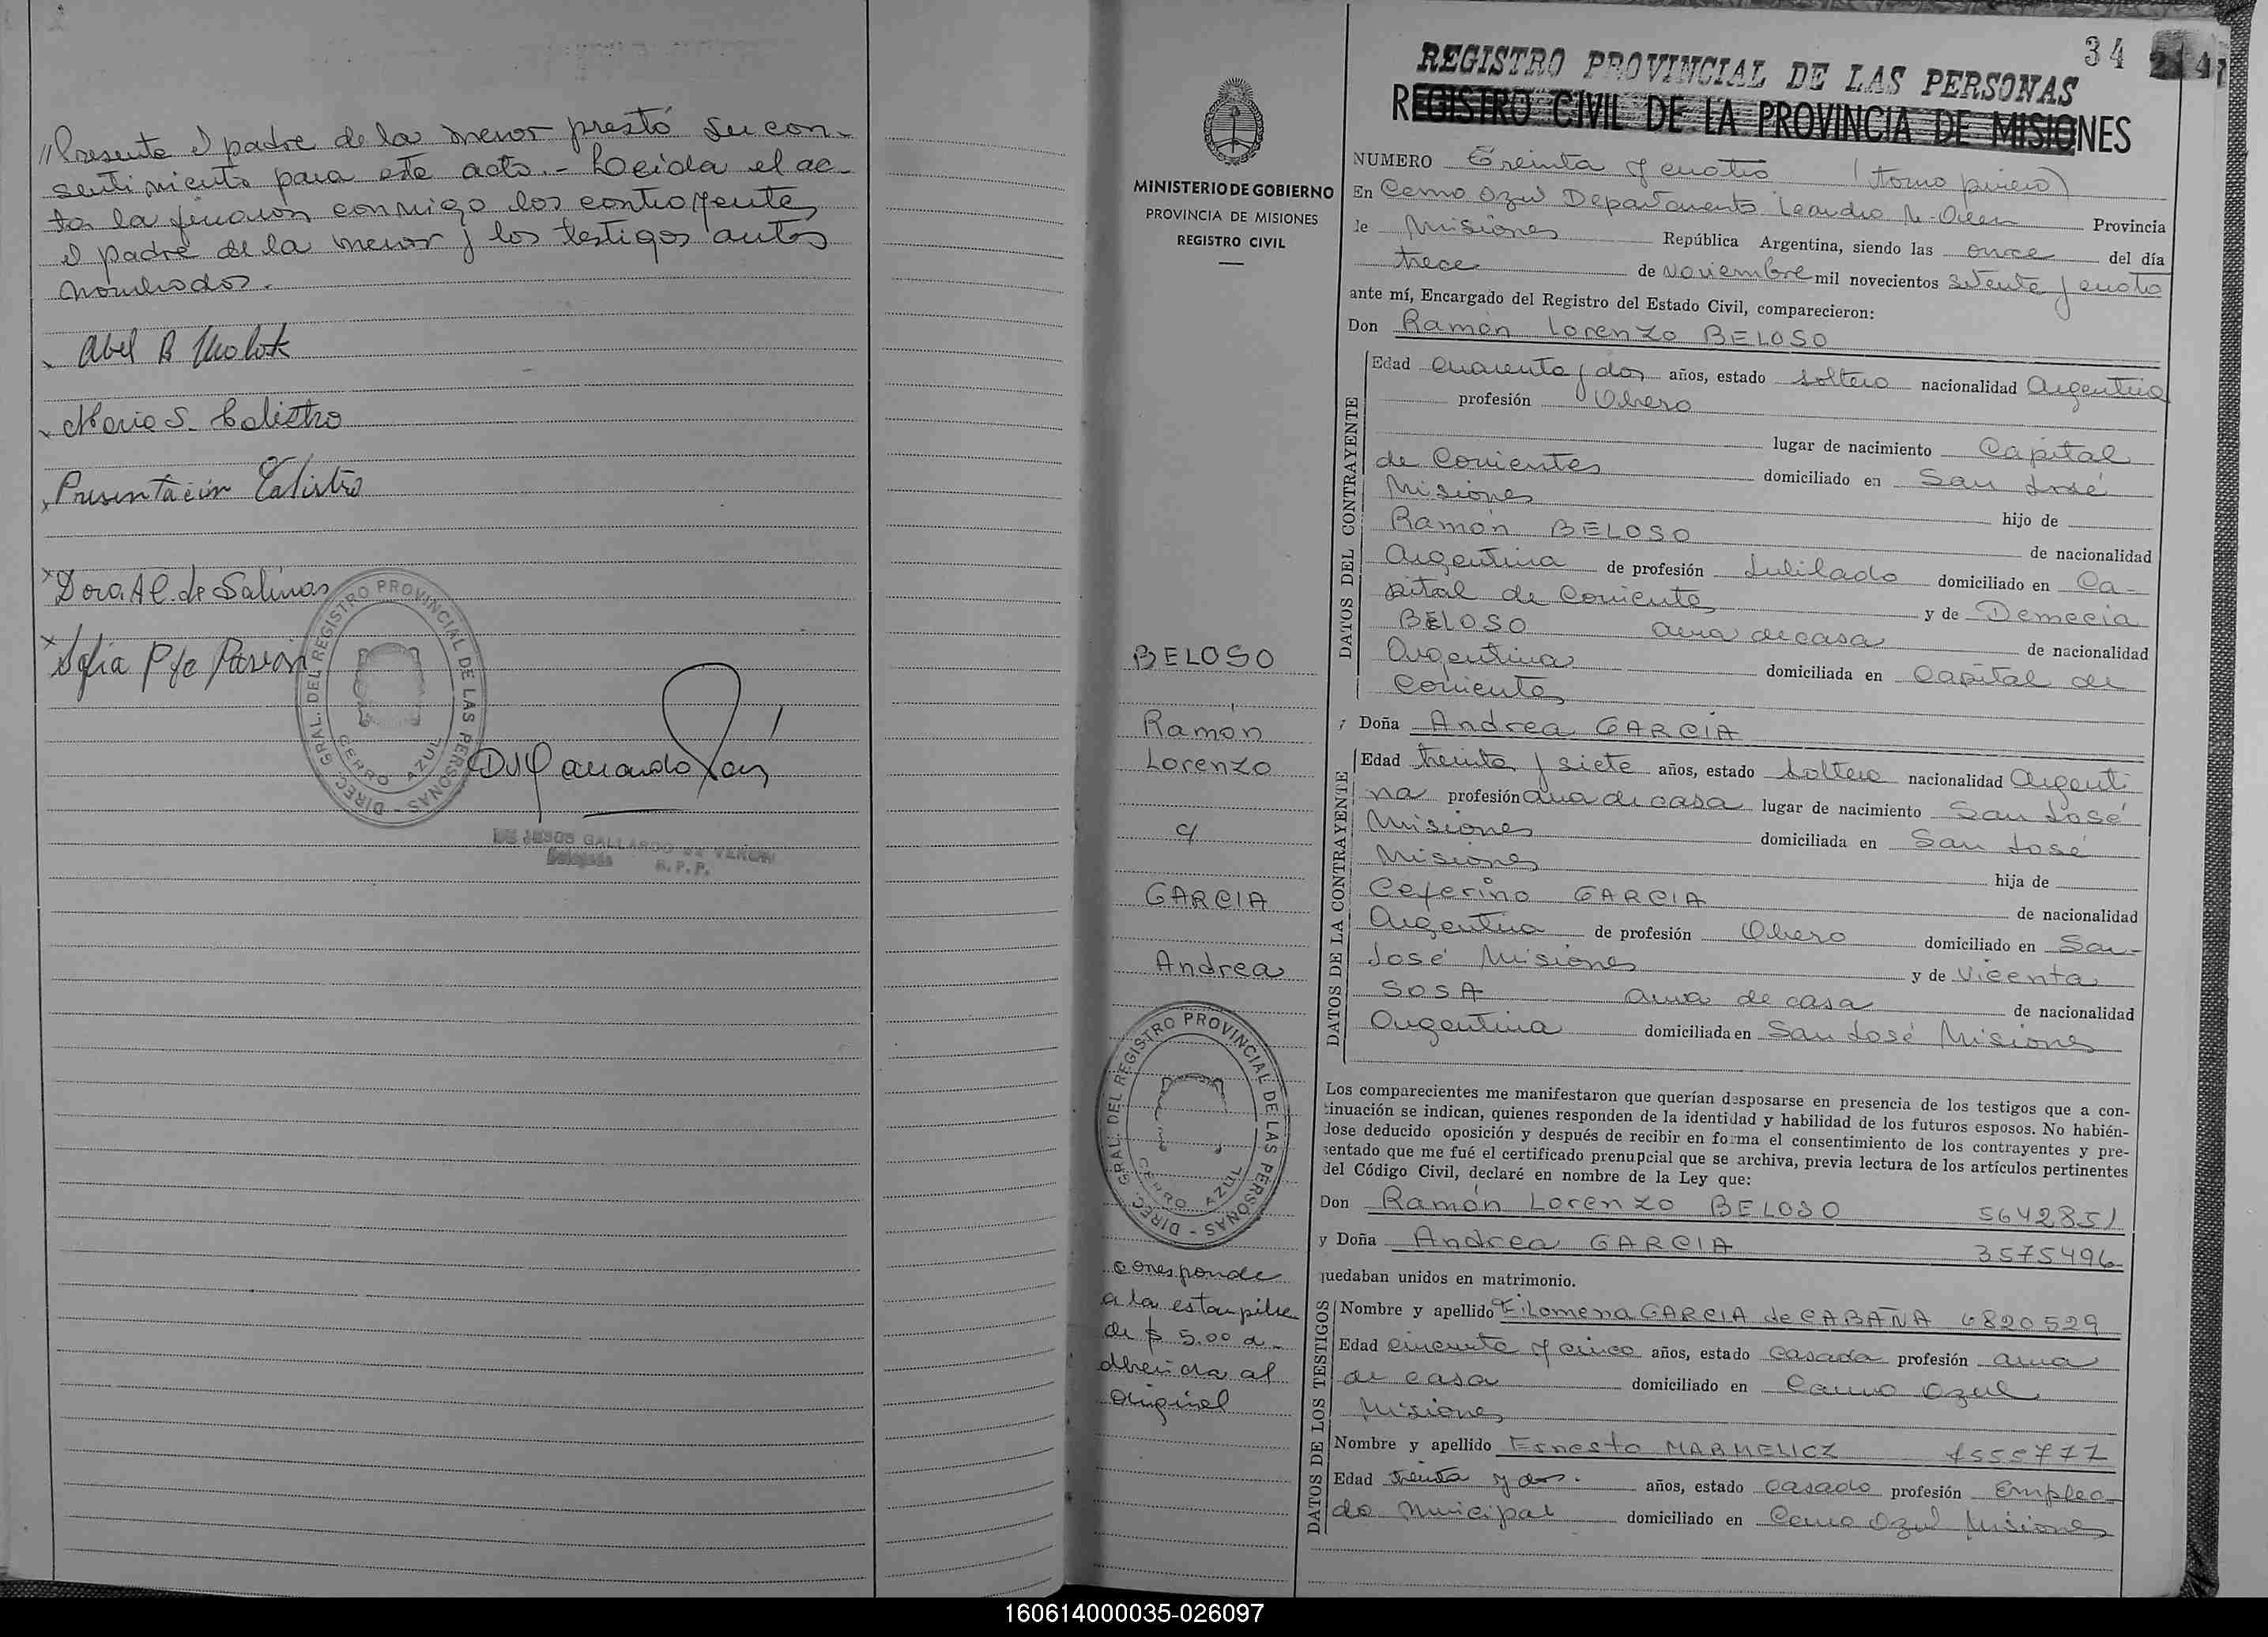 "Presente el padre de la menor prestó su con-
sentimiento para este acto.- Leeida el ac-
ta la firmaron conmigo los contrayentes
el padre de la menor y los testigos antes
nombrados.
Abel B
Maria S. Calistro
Presentación Calistro
Dora de Salinas
Sofia P de
DIREC. GRAL. DEL REGISTRO PROVINCIAL DE LAS PERSONAS -
CERRO AZUL
DE JESUS GALLARDO DE
Delegada R.P.P.
34
REGISTRO PROVINCIAL DE LAS PERSONAS
REGISTRO CIVIL DE LA PROVINCIA DE MISIONES
MINISTERIO DE GOBIERNO
PROVINCIA DE MISIONES
REGISTRO CIVIL
BELOSO
Ramón
Lorenzo
c/
GARCIA
Andrea
DIREC. GRAL. DEL REGISTRO PROVINCIAL DE LAS PERSONAS -
CERRO AZUL
corresponde
a la estampilla
de $ 5.00 a-
dherida al
original
NUMERO Treinta y cuatro (tomo primero)
En Cerro Azul Departamento Leandro N. Alem Provincia
de Misiones República Argentina, siendo las once del día
trece de Noviembre mil novecientos setenta y cuatro
ante mí, Encargado del Registro del Estado Civil, comparecieron:
Don Ramón Lorenzo BELOSO
DATOS DEL CONTRAYENTE
Edad cuarenta y dos años, estado soltero nacionalidad Argentina
profesión Obrero
lugar de nacimiento Capital
de Corrientes domiciliado en San José
Misiones hijo de
Ramón BELOSO de nacionalidad
Argentina de profesión Jubilado domiciliado en Ca-
pital de Corrientes y de Demecia
BELOSO ama de casa de nacionalidad
Argentina domiciliada en Capital de
Corrientes
y Doña Andrea GARCIA
DATOS DE LA CONTRAYENTE
Edad treinta y siete años, estado soltera nacionalidad Argenti
na profesión ama de casa lugar de nacimiento San José
Misiones domiciliada en San José
Misiones hija de
Ceferino GARCIA de nacionalidad
Argentina de profesión Obrero domiciliado en San-
José Misiones y de Vicenta
SOSA ama de casa de nacionalidad
Argentina domiciliada en San José Misiones
Los comparecientes me manifestaron que querían desposarse en presencia de los testigos que a con-
tinuación se indican, quienes responden de la identidad y habilidad de los futuros esposos. No habién-
dose deducido oposición y después de recibir en forma el consentimiento de los contrayentes y pre-
sentado que me fué el certificado prenupcial que se archiva, previa lectura de los artículos pertinentes
del Código Civil, declaré en nombre de la Ley que:
Don Ramón Lorenzo BELOSO 5642851
y Doña Andrea GARCIA 3575496
quedaban unidos en matrimonio.
DATOS DE LOS TESTIGOS
Nombre y apellido Filomena GARCIA de CABAÑA 6820529
Edad cincuenta y cinco años, estado casada profesión ama
de casa domiciliado en Cerro Azul
Misiones
Nombre y apellido Ernesto MARMELICZ
Edad treinta y dos. años, estado casado profesión Emplea
do Municipal domiciliado en Cerro Azul Misiones
160614000035-026097